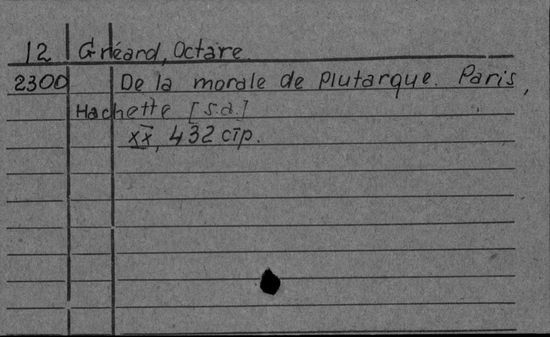 12 Gréard, Octave.
2300 De la morale de Plutarque. Paris,
Hachette [s.a.]
XX, 432 стр.